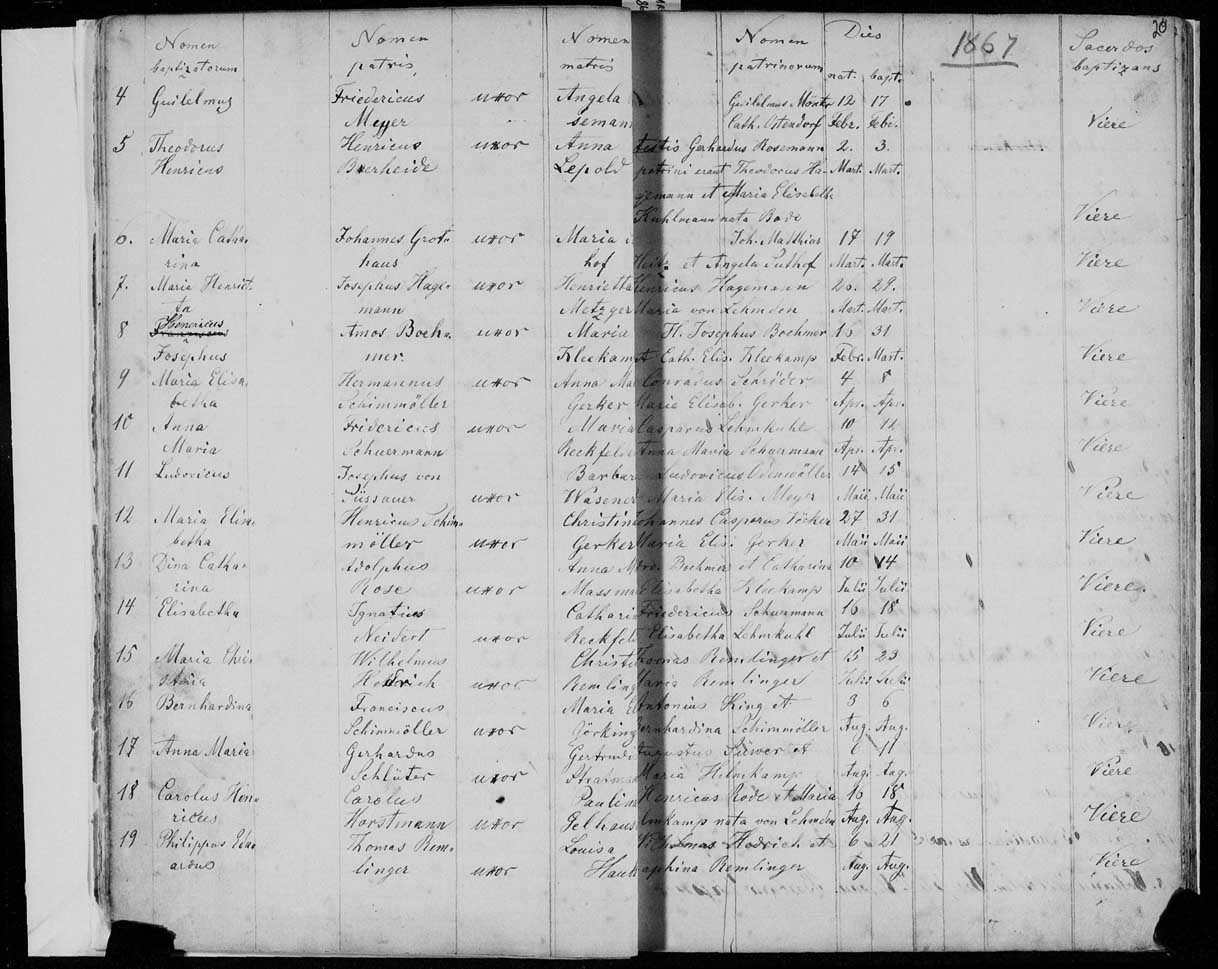 20
Nomen Nomen Nomen Nomen Dies 1867 Sacerdos
baptizatorum patris matris patrinorum nat. bapt. baptizans
4 Guilelmus Friedericus uxor Angela Guilelmus 12 17
Meyer Cath. Ostendorf Febr. Febr. Viere
5 Theodorus Henricus uxor Anna testis Gerhardus Rosemann 2. 3.
Henricus Lepold patrini erant Theodorus Ha- Mart. Mart.
gemann et Maria Elisabeth
Kuhlmann nata Bode Viere
6. Maria Catha- Johannes Grot- uxor Maria Joh. Matthias 17 19
rina haus hof et Angela Puthof Mart. Mart. Viere
7. Maria Henriet- Josephus Hage- uxor Henrietta Henricus Hagemann 26. 29.
ta mann Metzger Maria von Lehmden Mart. Mart. Viere
Henricus
8 Franciscus Amos Boeh- uxor Maria Fl. Josephus Boehmer 16 31
Josephus mer. Kleekamp et Cath. Elis. Kleekamp Febr. Mart. Viere
9 Maria Elisa- Hermannus uxor Anna Ma Conradus Schröder 4 8
betha Schimmöller Gerker Maria Elisab. Gerker Apr. Apr. Viere
10 Anna Fridericus uxor Maria Casparus Lehmkuhl 10 14
Maria Schuermann Reckfeld Anna Maria Schuermann Apr. Apr. Viere
11 Ludovicus Josephus von Barbara Ludovicus Odenwöller 14 15
Füssauer uxor Wasener Maria Elis. Meyer Maii Maii Viere
12 Maria Elisa- Henricus Schim- Christin Johannes Casparus Vöcker 27 31
betha möller uxor Gerker Maria Elis. Gerker Maii Maii Viere
13 Dina Catha- Adolphus Anna M Boehmer et Catharina 10 14
rina Rose uxor Massman Elisabetha Kleekamp Julii Julii Viere.
14 Elisabetha Ignatius Cathari Friedericus Schuermann 16 18
Neidert uxor Reckfeld Elisabetha Lehmkuhl Julii Julii Viere
15 Maria Chri- Wilhelmus Christi Thomas Remlinger et 15 23
stina Hedrich uxor Remling Maria Remlinger Julii Julii Viere
16 Bernhardina Franciscus Maria El Antonius King et 3 6
Schimmöller uxor Görking Bernhardina Schimmöller Aug. Aug. Viere
17 Anna Maria Gerhardus Gertrud Augustus et 6 11
Schlüter uxor Stratman Maria Helmkamp Aug. Aug. Viere
18 Carolus Hen- Carolus Paulin Henricus Rode et Maria 16 18
ricus Horstmann uxor Gelhaus nata von Lehmden Aug. Aug. Viere
19 Philippus Edu- Thomas Rem- Louisa Wilhelmus Hedrich et 6 21
ardus linger uxor Hauk Remlinger Aug. Aug. Viere